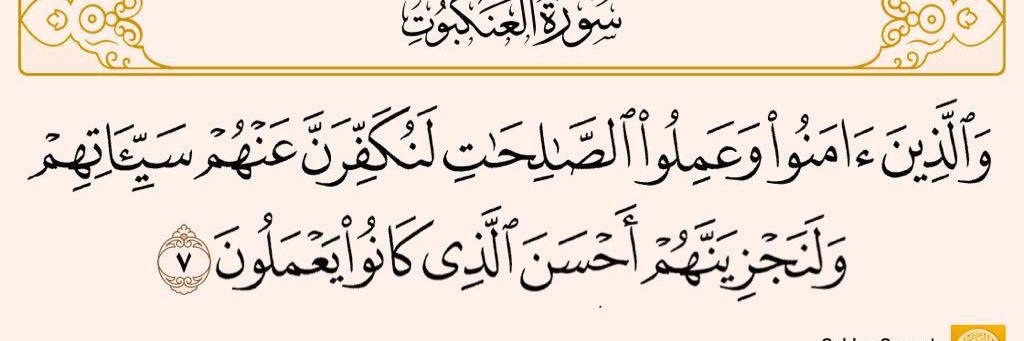 سُورَةُ الْعَنكَبُوتِ
وَٱلَّذِينَ ءَامَنُوا۟ وَعَمِلُوا۟ ٱلصَّـٰلِحَـٰتِ لَنُكَفِّرَنَّ عَنْهُمْ سَيِّـَٔاتِهِمْ
وَلَنَجْزِيَنَّهُمْ أَحْسَنَ ٱلَّذِى كَانُوا۟ يَعْمَلُونَ ٧